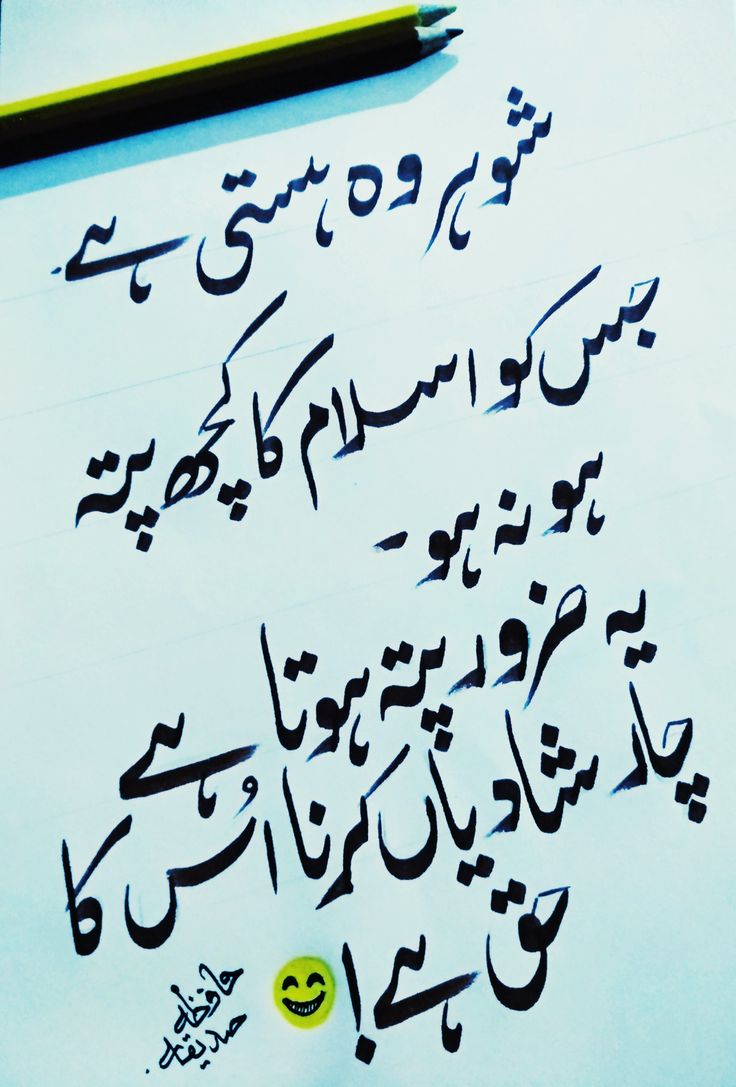 شوہر وہ ہستی ہے
جس کو اسلام کا کچھ پتہ
ہو نہ ہو۔
یہ ضرور پتہ ہوتا ہے
چار شادیاں کرنا اُس کا
حق ہے!
حافظہ
صدیقہ